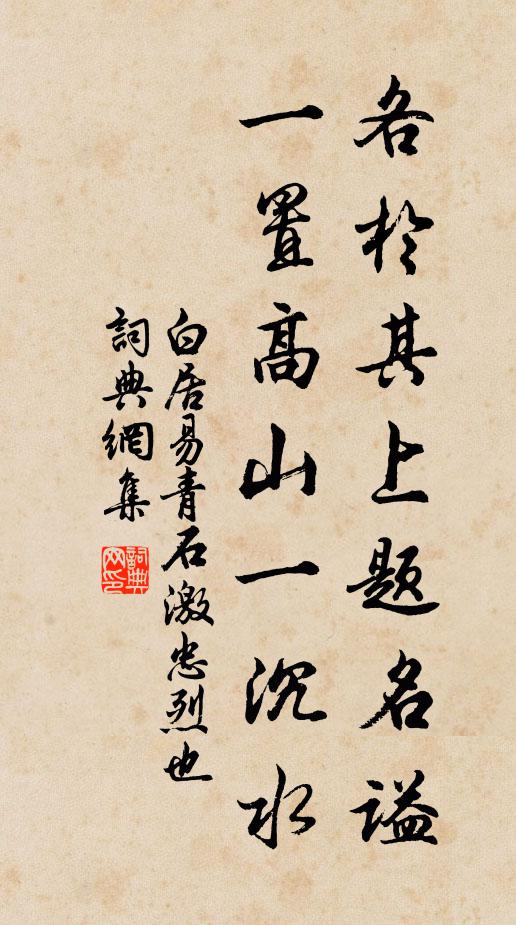 各於其上题名谥
一置高山一沉水
白居易青石激忠烈也
詞典網集
詞典网印